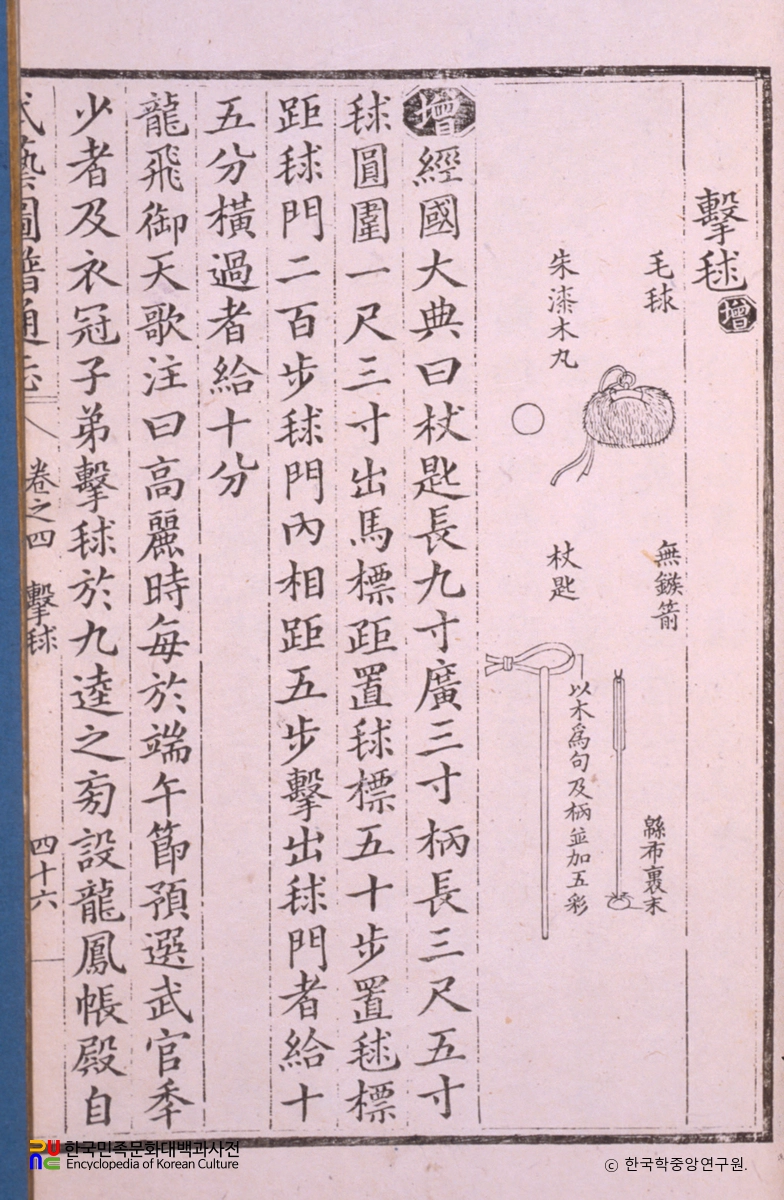 擊毬 增
毛毬
無鏃箭
緜布裹末
朱漆木丸
杖匙
以木爲句及柄並加五彩
增 經國大典曰杖匙長九寸廣三寸柄長三尺五寸
毬圓圍一尺三寸出馬標距置毬標五十步置毬標
距毬門二百步毬門內相距五步擊出毬門者給十
五分橫過者給十分
龍飛御天歌注曰高麗時每於端午節預選武官年
少者及衣冠子弟擊毬於九逵之旁設龍鳳帳殿自
武藝圖譜通志 卷之四 擊毬 四十六
한국민족문화대백과사전
Encyclopedia of Korean Culture
ⓒ 한국학중앙연구원.